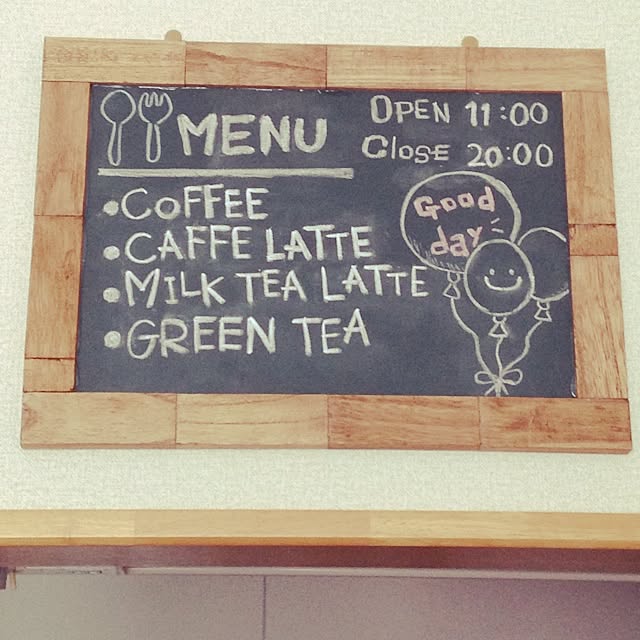 MENU
OPEN 11:00
Close 20:00
•COFFEE
•CAFFE LATTE
•MILK TEA LATTE
•GREEN TEA
Good
day